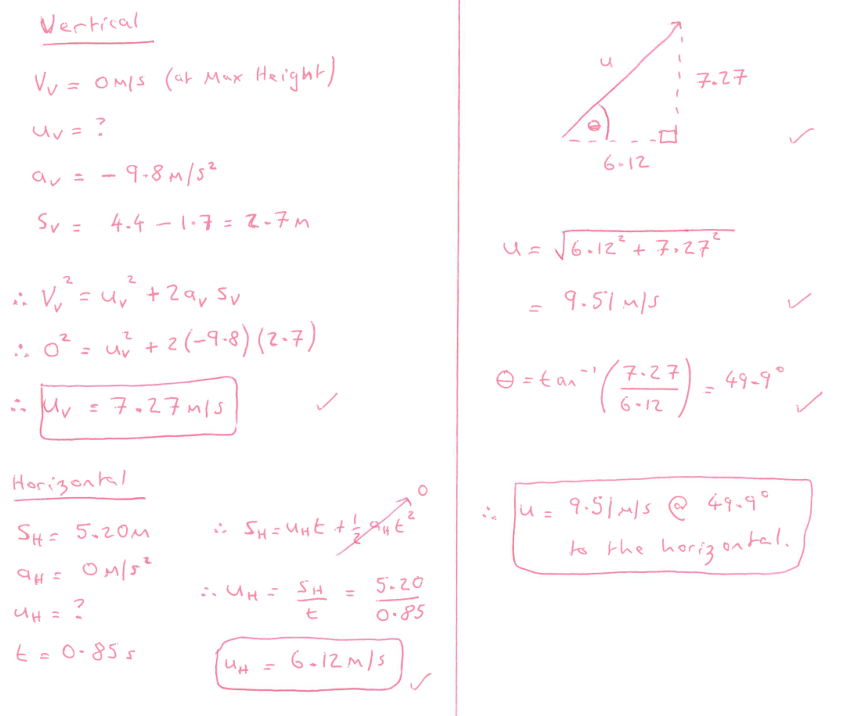 Vertical
Vᵥ = 0 m/s (at Max Height)
uᵥ = ?
aᵥ = - 9.8 m/s²
Sᵥ = 4.4 - 1.7 = 2.7 m
∴ Vᵥ² = uᵥ² + 2aᵥ Sᵥ
∴ 0² = uᵥ² + 2(-9.8)(2.7)
∴ uᵥ = 7.27 m/s ✓
Horizontal
S_H = 5.20 m
a_H = 0 m/s²
u_H = ?
t = 0.85 s
∴ S_H = u_H t + ½ a_H t² 0
∴ u_H = S_H/t = 5.20/0.85
u_H = 6.12 m/s ✓
u
7.27
θ
6.12 ✓
u = √(6.12² + 7.27²)
= 9.51 m/s ✓
θ = tan⁻¹(7.27/6.12) = 49.9° ✓
∴ u = 9.51 m/s @ 49.9°
to the horizontal.